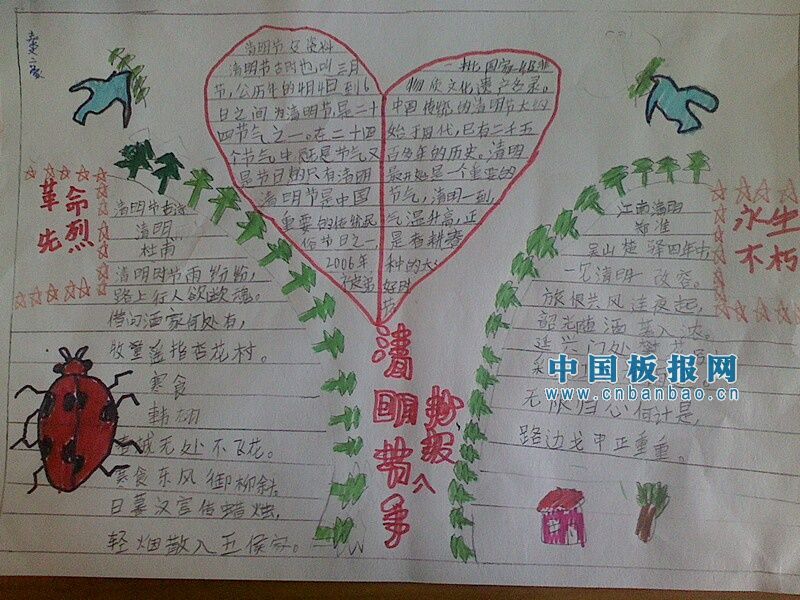 清明节文资料
清明节古时也叫三月
节,公历年的4月4日到6
日之间为清明节,是二十
四节气之一。在二十四
个节气中,既是节气又
是节日的只有清明
清明节是中国
重要的传统民
俗节日之一
2006年
一批国家级非
物质文化遗产名录。
中国传统的清明节大约
始于周代,已有二千五
百多年的历史。清明
最开始是一个重要的
节气,清明一到,
气温升高,正
是春耕春
种的大
好时
节
革命
先烈
清明节古诗
清明
清明时节雨纷纷,
路上行人欲断魂。
借问酒家何处有,
牧童遥指杏花村。
寒食
韩翃
春城无处不飞花。
寒食东风御柳斜。
日暮汉宫传蜡烛,
轻烟散入五侯家。
清明节手
抄报
永生
不朽
江南清明
郑准
吴山楚驿四年中
一见清明一改容。
旅恨共风连夜起,
韶光随酒著人浓。
延兴门外
无限归心何计是,
路边戈甲正重重。
中国板报网
www.cnbanbao.cn